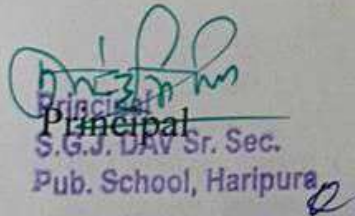 Principal
Principal
S.G.J. DAV Sr. Sec.
Pub. School, Haripura